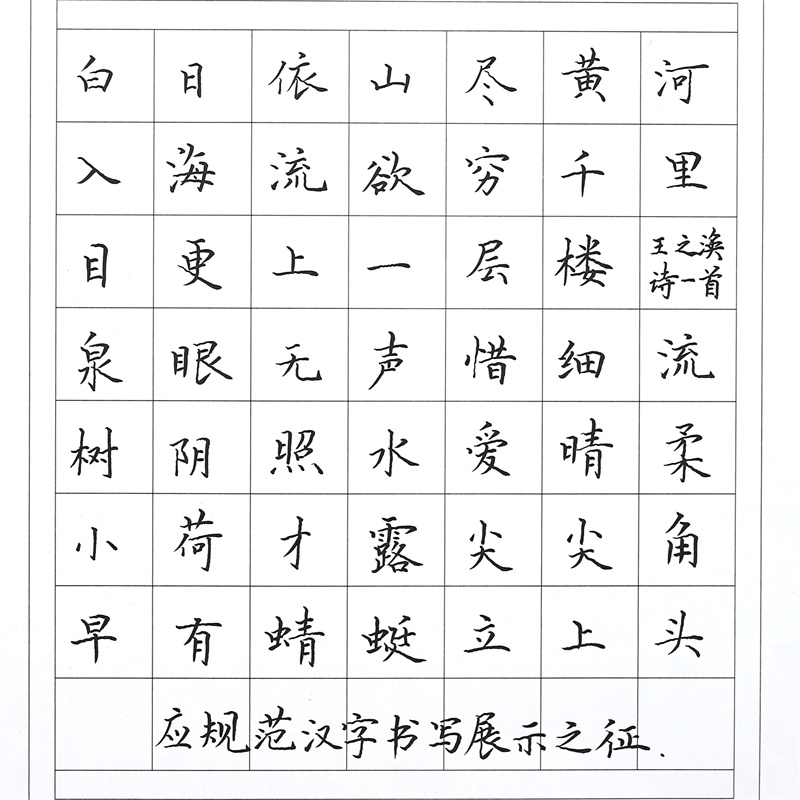 白日依山尽黄河
入海流欲穷千里
目更上一层楼王之涣
诗一首
泉眼无声惜细流
树阴照水爱晴柔
小荷才露尖尖角
早有蜻蜓立上头
应规范汉字书写展示之征.